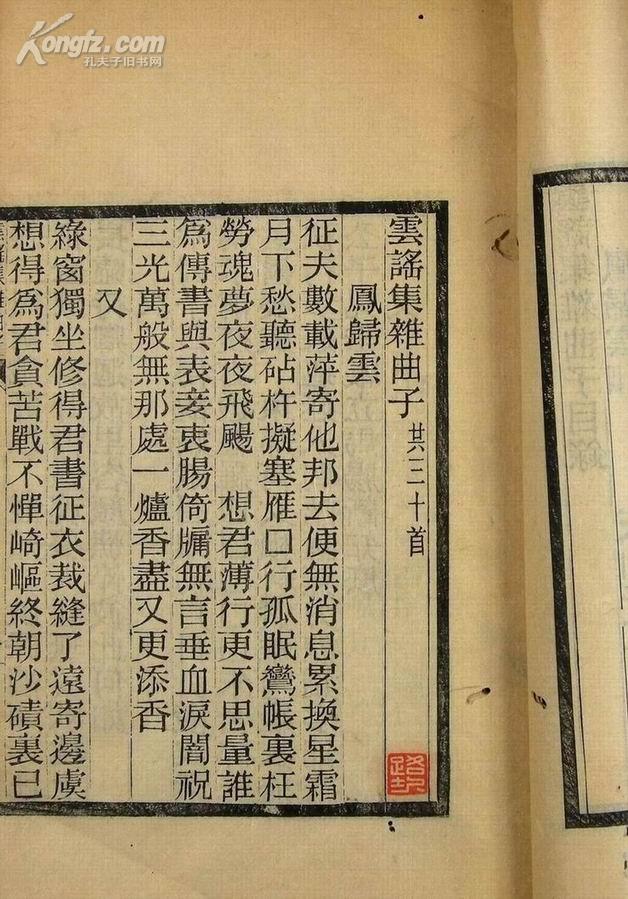 Kongfz.com
孔夫子旧书网
雲謠集雜曲子 共三十首
鳳歸雲
征夫數載萍寄他邦去便無消息累換星霜
月下愁聽砧杵擬塞雁口行孤眠鸞帳裏枉
勞魂夢夜夜飛颺 想君薄行更不思量誰
為傳書與表妾衷腸倚牖無言垂血淚闇祝
三光萬般無那處一爐香盡又更添香
又
綠窗獨坐修得君書征衣裁縫了遠寄邊虞
想得為君貪苦戰不憚崎嶇終朝沙磧裏已